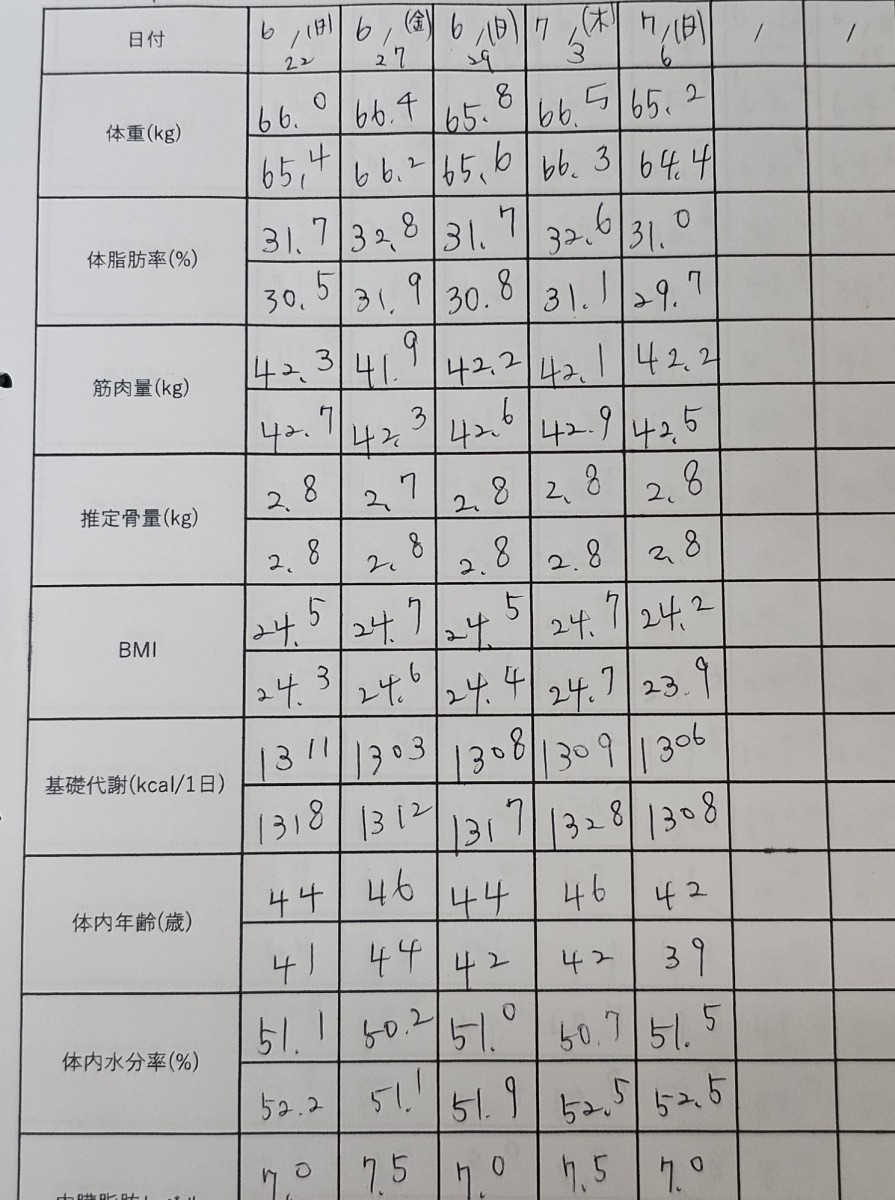 日付 6/22(日) 6/27(金) 6/29(日) 7/3(木) 7/6(日) / /
体重(kg) 66.0 66.4 65.8 66.5 65.2
65.4 66.2 65.6 66.3 64.4
体脂肪率(%) 31.7 32.8 31.7 32.6 31.0
30.5 31.9 30.8 31.1 29.7
筋肉量(kg) 42.3 41.9 42.2 42.1 42.2
42.7 42.3 42.6 42.9 42.5
推定骨量(kg) 2.8 2.7 2.8 2.8 2.8
2.8 2.8 2.8 2.8 2.8
BMI 24.5 24.7 24.5 24.7 24.2
24.3 24.6 24.4 24.7 23.9
基礎代謝(kcal/1日) 1311 1303 1308 1309 1306
1318 1312 1317 1328 1308
体内年齢(歳) 44 46 44 46 42
41 44 42 42 39
体内水分率(%) 51.1 50.2 51.0 50.7 51.5
52.2 51.1 51.9 52.5 52.5
7.0 7.5 7.0 7.5 7.0